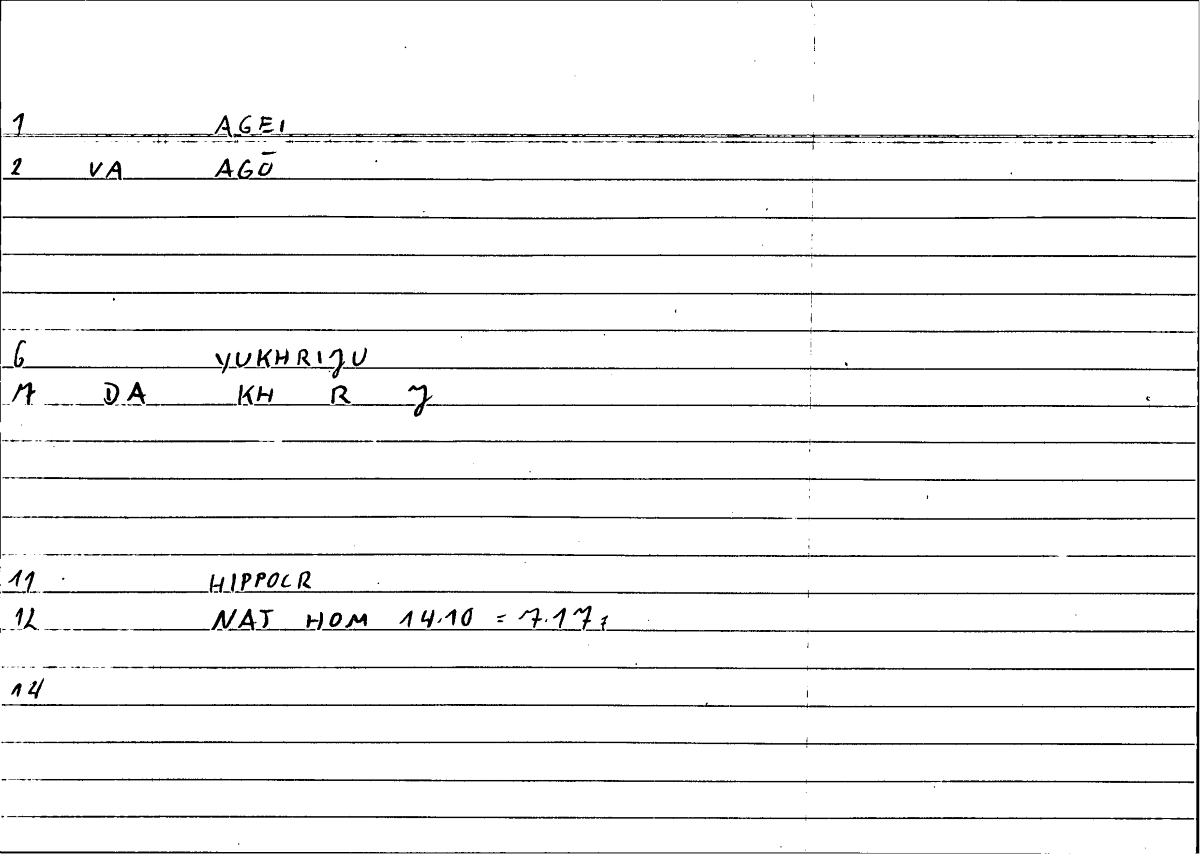 1 AGEI
2 VA AGŌ
6 YUKHRIJU
7 DA KH R J
11 HIPPOCR
12 NAT HOM 14.10 = 7.17,
14